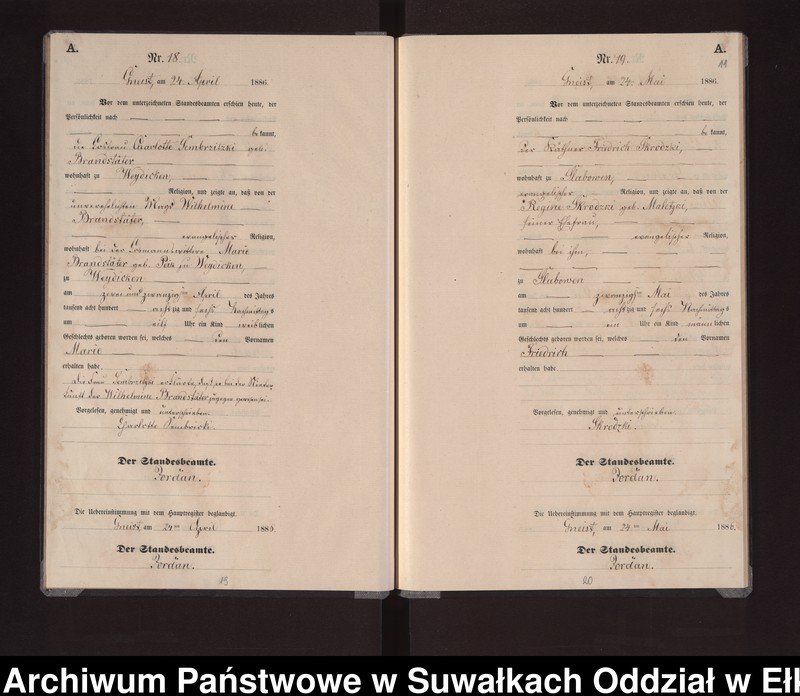 A.
Nr. 18
Gneist, am 24. April 1886.
Vor dem unterzeichneten Standesbeamten erschien heute, der
Persönlichkeit nach
be kannt,
die Charlotte Sembritzki geb.
Brandstäter,
wohnhaft zu Weydicken,
Religion, und zeigte an, daß von der
unverehelichten Magd Wilhelmine
Brandstäter,
evangelischer Religion,
wohnhaft bei der Losmannswittwe Marie
Brandstäter geb. zu Weydicken,
zu Weydicken
am zwei und zwanzigsten April des Jahres
tausend acht hundert achtzig und sechs Nachmittags
um elf Uhr ein Kind weiblichen
Geschlechts geboren worden sei, welches den Vornamen
Marie
erhalten habe.
Die Frau Sembritzki erklärte, daß sie bei der Nieder-
kunft der Wilhelmine Brandstäter zugegen gewesen sei.
Vorgelesen, genehmigt und unterschrieben.
Der Standesbeamte.
Jordan.
Die Uebereinstimmung mit dem Hauptregister beglaubigt.
Gneist, am 24ten April 1886.
Der Standesbeamte.
Jordan.
19
A.
11
Nr. 19.
Gneist, am 24. Mai 1886.
Vor dem unterzeichneten Standesbeamten erschien heute, der
Persönlichkeit nach
be kannt,
der Käthner Friedrich Skrodzki,
wohnhaft zu Slabowen,
evangelischer Religion, und zeigte an, daß von der
Regine Skrodzki geb.
seiner Ehefrau,
evangelischer Religion,
wohnhaft bei ihm,
zu Slabowen
am zwanzigsten Mai des Jahres
tausend acht hundert achtzig und sechs Nachmittags
um ein Uhr ein Kind männlichen
Geschlechts geboren worden sei, welches den Vornamen
Friedrich
erhalten habe.
Vorgelesen, genehmigt und unterschrieben.
Skrodzki.
Der Standesbeamte.
Jordan.
Die Uebereinstimmung mit dem Hauptregister beglaubigt.
Gneist, am 24ten Mai 1886.
Der Standesbeamte.
Jordan.
20
Archiwum Państwowe w Suwałkach Oddział w Eł